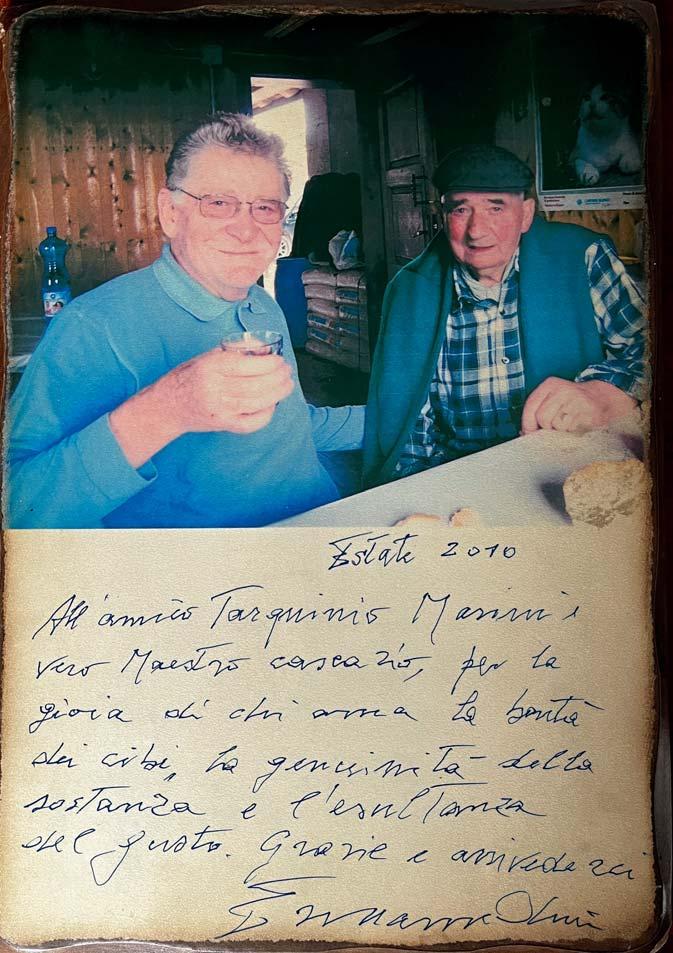 Estate 2010
All'amico Tarquinio Masini,
vero Maestro casearìo, per la
gioia di chi ama la bontà
dei cibi, la genuinità della
sostanza e l'esultanza
del gusto. Grazie e arrivederci
Ermanno Olmi